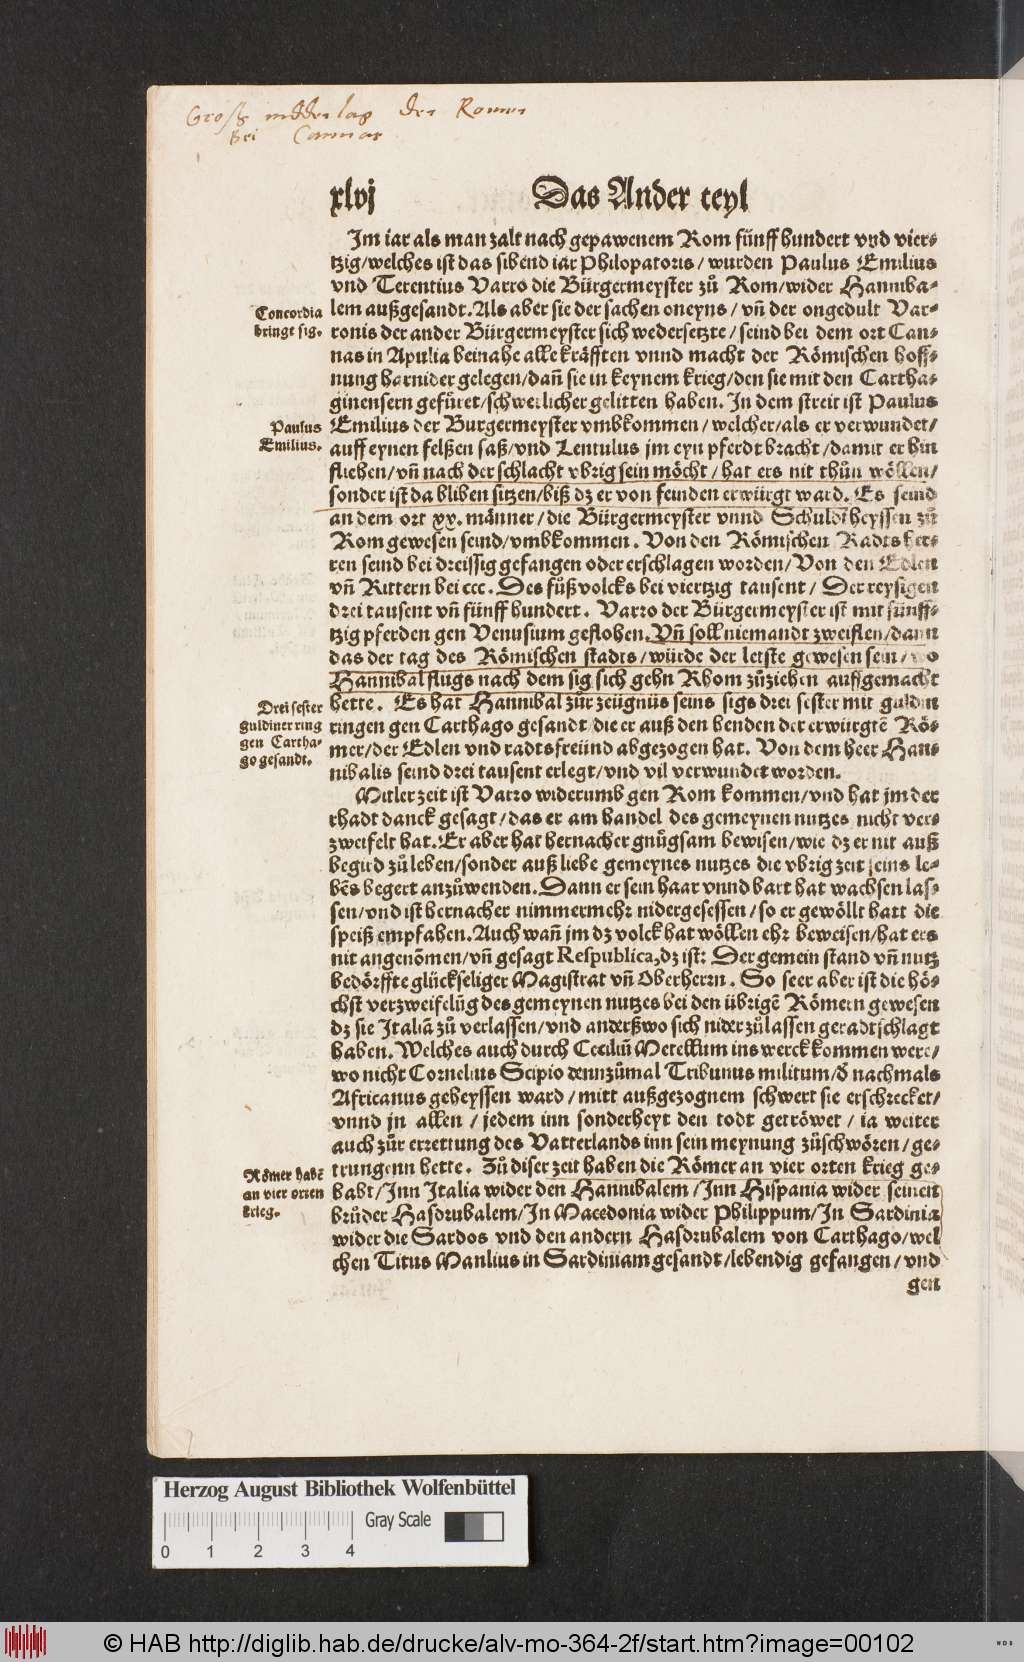 Groß nidderlag der Romer
Bei Cannas
xlvj Das Ander teyl
Im iar als man zalt nach gepawenem Rom fünff hundert vnd vier⸗
tzig/welches ist das sibend iar Philopatoris/ wurden Paulus Emilius
vnd Terentius Varro die Bürgermeyster zů Rom/wider Hanniba⸗
Concordia
bringt sig.
lem außgesandt. Als aber sie der sachen oneyns/ vñ der ongedult Var⸗
ronis der ander Bürgermeyster sich wedersetzte/ seind bei dem ort Can⸗
nas in Apulia beinahe alle kräfften vnnd macht der Römischen hoff⸗
nung harnider gelegen/dañ sie in keynem krieg/den sie mit den Cartha⸗
ginensern gefüret/schwerlicher gelitten haben. In dem streit ist Paulus
Paulus
Emilius.
Emilius der Burgermeyster vmbkommen/ welcher/als er verwundet/
auff eynen felßen saß/vnd Lentulus jm eyn pferdt bracht/damit er hin
fliehen/vñ nach der schlacht vbrig sein möcht/ hat ers nit thůn wöllen/
sonder ist da bliben sitzen/biß dz er von feinden erwürgt ward. Es seind
an dem ort xx. männer/die Bürgermeyster vnnd Schuldtheyssen zů
Rom gewesen seind/vmbkommen. Von den Römischen Radts her⸗
ren seind bei dreissig gefangen oder erschlagen worden/Von den Edlen
vñ Rittern bei ccc. Des fůßvolcks bei viertzig tausent/ Der reysigen
drei tausent vñ fünff hundert. Varro der Bürgermeyster ist mit fünff⸗
tzig pferden gen Venusium geflohen. Vñ soll niemandt zweiflen/dann
das der tag des Römischen stadts/würde der letste gewesen sein/ wo
Hannibal flugs nach dem sig sich gehn Rhom zůziehen auffgemacht
Drei sester
guldiner ring
gen Cartha⸗
go gesandt.
hette. Es hat Hannibal zůr zeügnüs seins sigs drei sester mit gulden
ringen gen Carthago gesandt/die er auß den henden der erwürgtẽ Rö⸗
mer/der Edlen vnd radtsfreünd abgezogen hat. Von dem heer Han⸗
nibalis seind drei tausent erlegt/vnd vil verwundet worden.
Mitler zeit ist Varro widerumb gen Rom kommen/vnd hat jm der
rhadt danck gesagt/das er am handel des gemeynen nutzes nicht ver⸗
zweifelt hat. Er aber hat hernacher gnůgsam bewisen/wie dz er nit auß
begird zůleben/sonder auß liebe gemeynes nutzes die vbrig zeit seins le⸗
bẽs begert anzůwenden. Dann er sein haar vnnd bart hat wachsen las⸗
sen/vnd ist hernacher nimmermehr nidergesessen/so er gewöllt hatt die
speiß empfahen. Auch wañ jm dz volck hat wöllen ehr beweisen/hat ers
nit angenõmen/vñ gesagt Respublica, dz ist: Der gemein stand vñ nutz
bedörffte glückseliger Magistrat vñ Oberherrn. So seer aber ist die hö⸗
chst verzweifelũg des gemeynen nutzes bei den übrigẽ Römern gewesen
dz sie Italiã zů verlassen/vnd anderßwo sich nider zůlassen geradtschlagt
haben. Welches auch durch Ceciliũ Metellum ins werck kommen were/
wo nicht Cornelius Scipio dennzůmal Tribunus militum/ď nachmals
Africanus geheyssen ward/ mitt außgezognem schwert sie erschrecket/
vnnd jn allen / jedem inn sonderheyt den todt getröwet/ ia weiter
auch zůr errettung des Vatterlands inn sein meynung zůschwören/ ge⸗
Römer habẽ
an vier orten
krieg.
trungenn hette. Zů diser zeit haben die Römer an vier orten krieg ge⸗
habt/Inn Italia wider den Hannibalem/Inn Hispania wider seinen
brůder Hasdrubalem/In Macedonia wider Philippum/In Sardinia
wider die Sardos vnd den andern Hasdrubalem von Carthago/wel
chen Titus Manlius in Sardiniam gesandt/lebendig gefangen/ vnd
gen
Herzog August Bibliothek Wolfenbüttel
Gray Scale
0 1 2 3 4
© HAB http://diglib.hab.de/drucke/alv-mo-364-2f/start.htm?image=00102